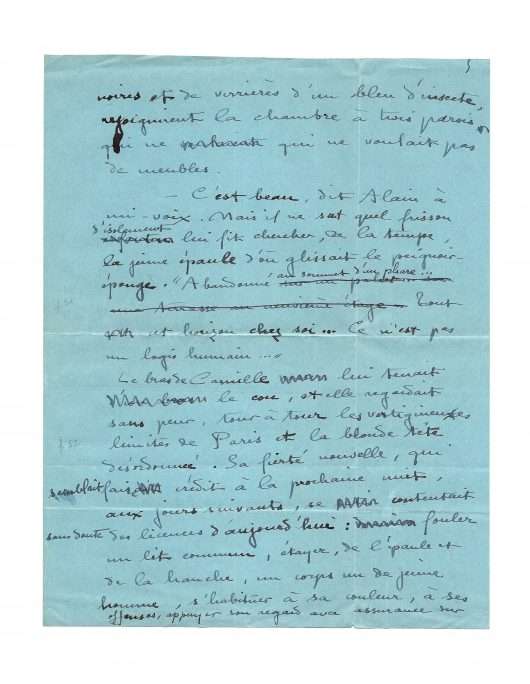 5
noires et de verrières d'un bleu d'insecte,
rejoignirent la chambre à trois parois
qui ne qui ne voulait pas
de meubles.
— C'est beau, dit Alain à
mi-voix. Mais il ne sut quel frisson
d'isolement
lui fit chercher, de la tempe,
la jeune épaule d'où glissait le peignoir
au sommet d'un phare...
éponge. "Abandonné sur un
une terrasse au neuvième étage. Tout
et horizon chez soi... Ce n'est pas
un logis humain..."
Le bras de Camille lui tenait
le cou, et elle regardait
sans peur, tour à tour les vertigineuses
limites de Paris et la blonde tête
désordonnée. Sa fierté nouvelle, qui
semblait faire crédit à la prochaine nuit,
aux jours suivants, se contentait
sans doute des licences d'aujourd'hui : fouler
un lit commun, étayer, de l'épaule et
de la hanche, un corps nu de jeune
homme, s'habituer à sa couleur, à ses
offenses, appuyer son regard avec assurance sur